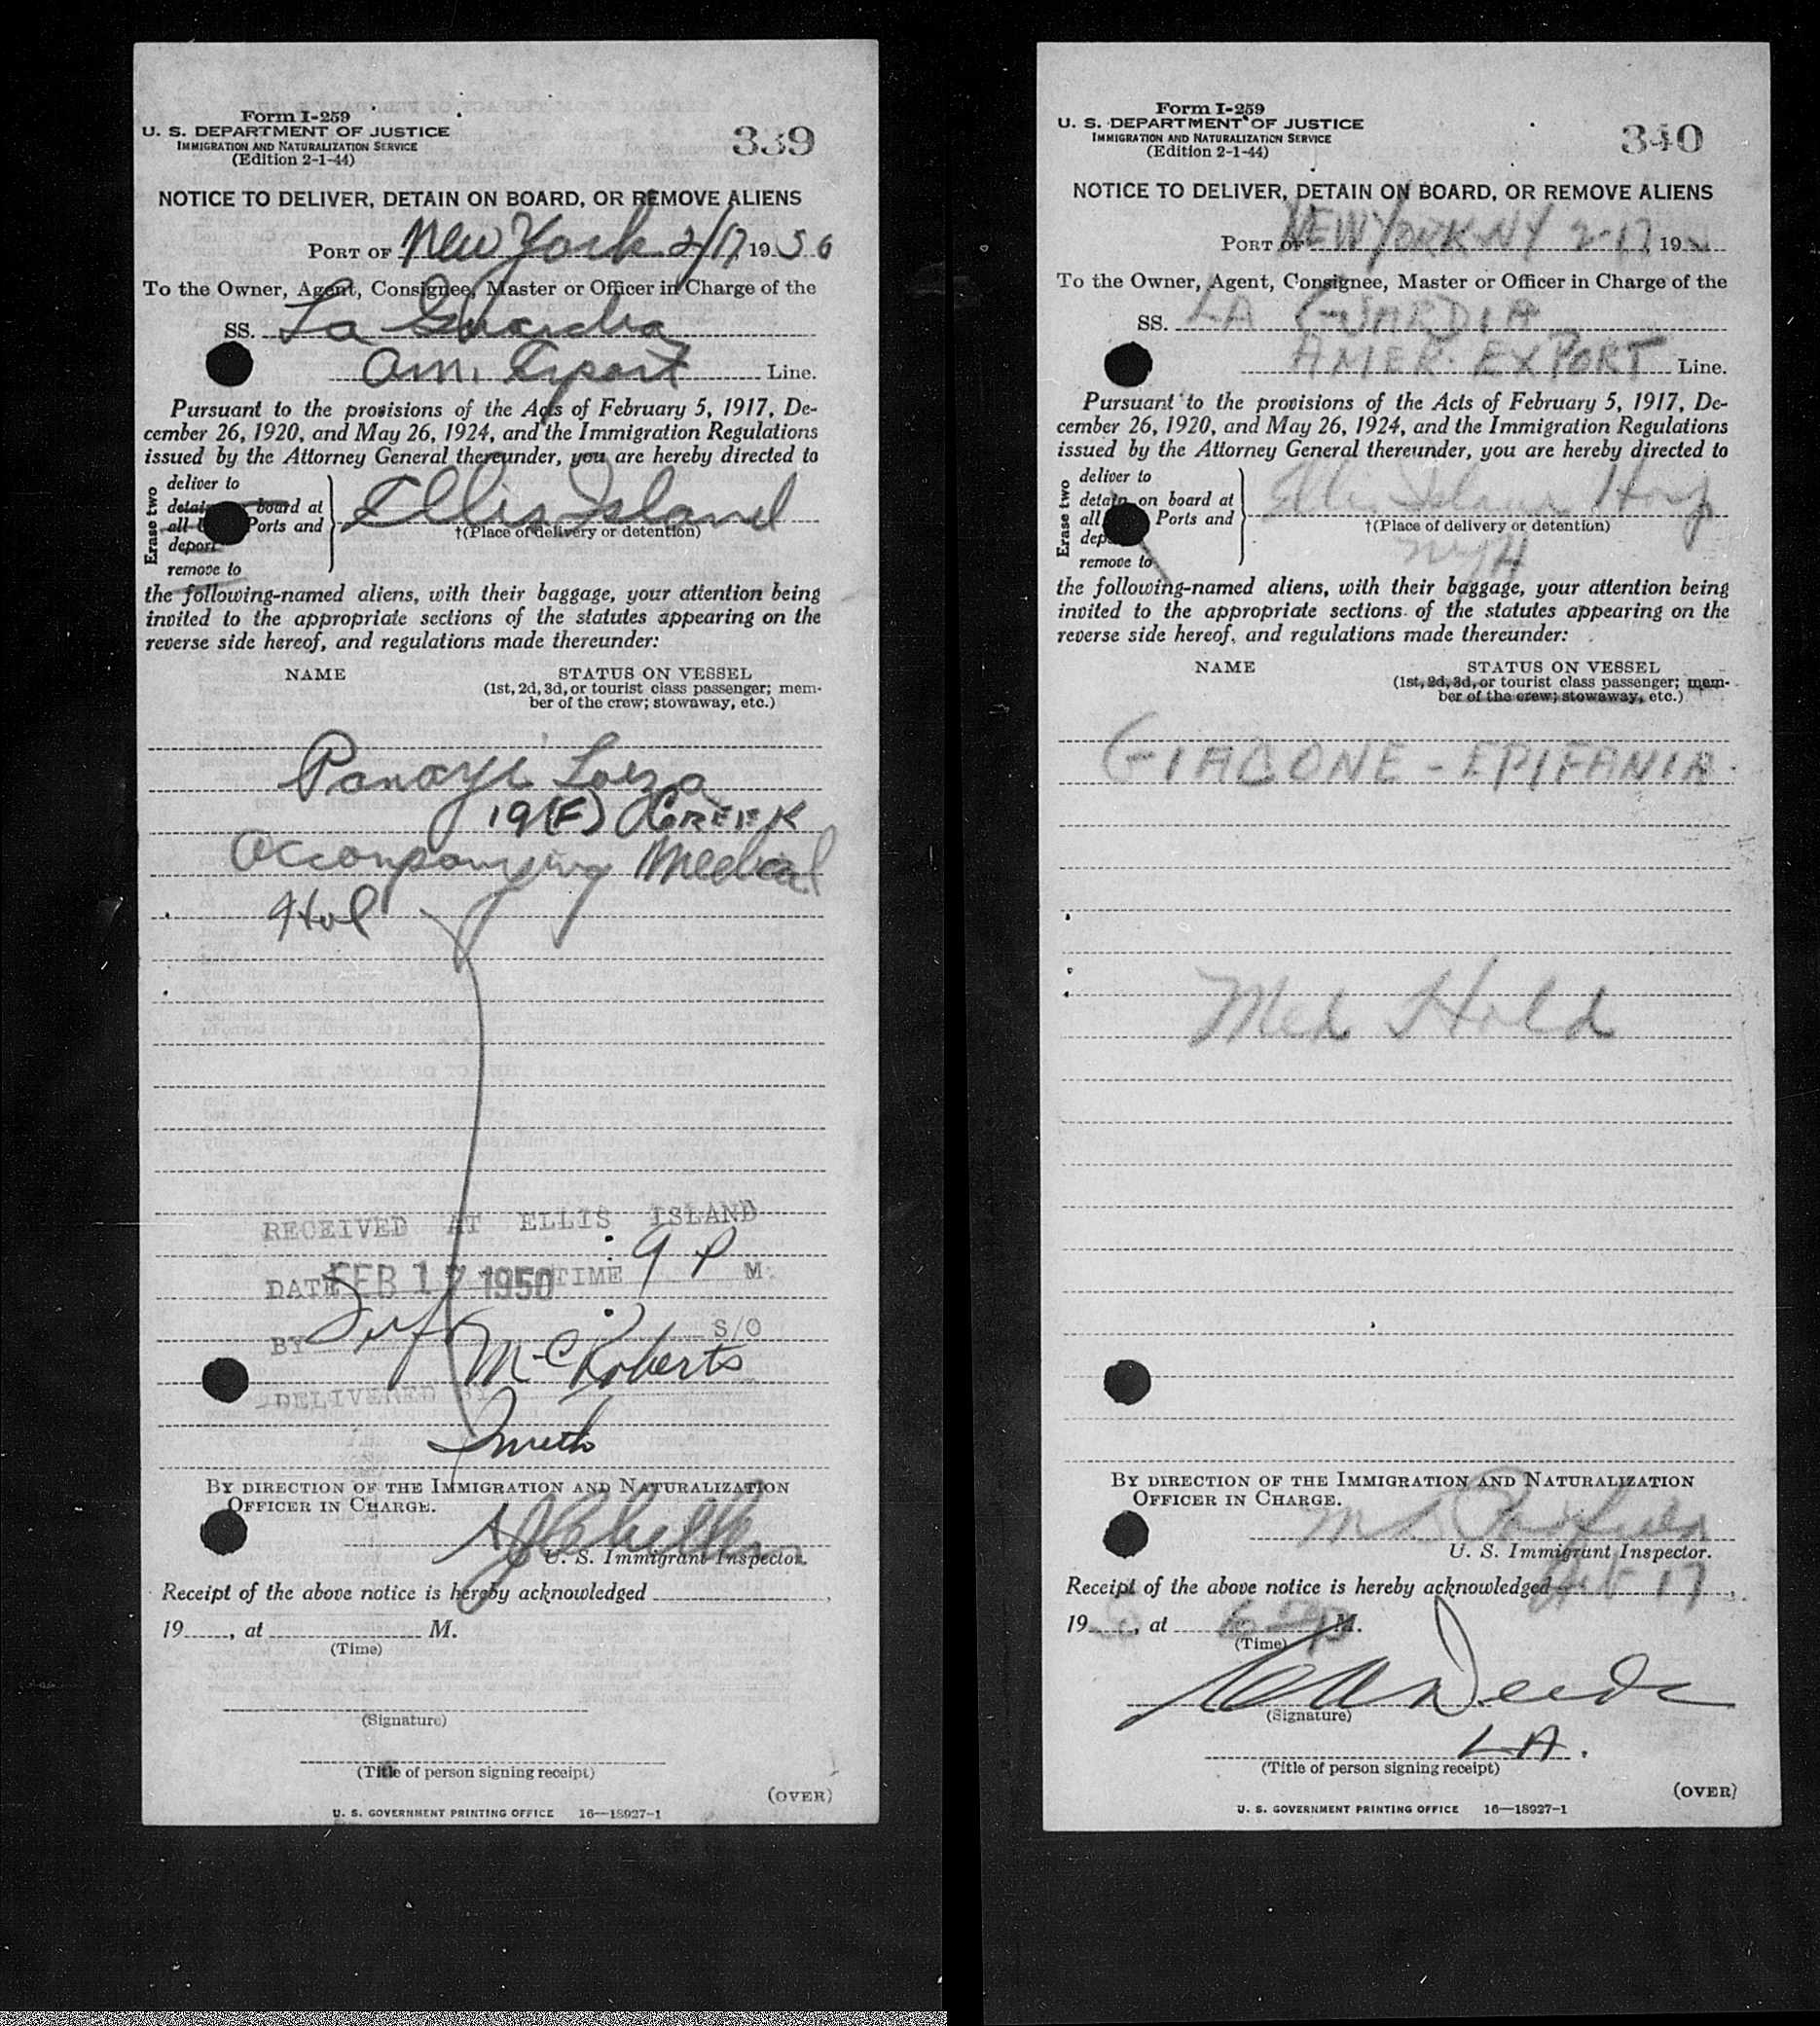 Form I-259
U. S. DEPARTMENT OF JUSTICE
IMMIGRATION AND NATURALIZATION SERVICE
(Edition 2-1-44)
339
NOTICE TO DELIVER, DETAIN ON BOARD, OR REMOVE ALIENS
PORT OF New York 2/17 1950
To the Owner, Agent, Consignee, Master or Officer in Charge of the
SS. La Guardia
Am. Export Line.
Pursuant to the provisions of the Acts of February 5, 1917, De-
cember 26, 1920, and May 26, 1924, and the Immigration Regulations
issued by the Attorney General thereunder, you are hereby directed to
Erase two
deliver to
board at
all Ports and
deport
remove to
Ellis Island
†(Place of delivery or detention)
the following-named aliens, with their baggage, your attention being
invited to the appropriate sections of the statutes appearing on the
reverse side hereof, and regulations made thereunder:
NAME STATUS ON VESSEL
(1st, 2d, 3d, or tourist class passenger; mem-
ber of the crew; stowaway, etc.)
Panayi Loiza
19 (F) GREEK
Accompanying Medical
Hol
RECEIVED AT ELLIS ISLAND
DATE FEB 17 1950 TIME 9 P M.
BY S/O
McRoberts
DELIVERED BY
Smith
BY DIRECTION OF THE IMMIGRATION AND NATURALIZATION
OFFICER IN CHARGE.
U. S. Immigrant Inspector.
Receipt of the above notice is hereby acknowledged
19 , at M.
(Time)
(Signature)
(Title of person signing receipt)
(OVER)
U. S. GOVERNMENT PRINTING OFFICE 16—18927-1
Form I-259
U. S. DEPARTMENT OF JUSTICE
IMMIGRATION AND NATURALIZATION SERVICE
(Edition 2-1-44)
340
NOTICE TO DELIVER, DETAIN ON BOARD, OR REMOVE ALIENS
PORT OF NEW YORK NY 2-17 19
To the Owner, Agent, Consignee, Master or Officer in Charge of the
SS. LA GUARDIA
AMER. EXPORT Line.
Pursuant to the provisions of the Acts of February 5, 1917, De-
cember 26, 1920, and May 26, 1924, and the Immigration Regulations
issued by the Attorney General thereunder, you are hereby directed to
Erase two
deliver to
detain on board at
all Ports and
remove to
Ellis Island Hosp
†(Place of delivery or detention)
NYH
the following-named aliens, with their baggage, your attention being
invited to the appropriate sections of the statutes appearing on the
reverse side hereof, and regulations made thereunder:
NAME STATUS ON VESSEL
(1st, 2d, 3d, or tourist class passenger; mem-
ber of the crew; stowaway, etc.)
GIACONE - EPIFANIA
Med Hold
BY DIRECTION OF THE IMMIGRATION AND NATURALIZATION
OFFICER IN CHARGE.
U. S. Immigrant Inspector.
Receipt of the above notice is hereby acknowledged Feb 17,
19 , at M.
(Time)
(Signature)
LA.
(Title of person signing receipt)
(OVER)
U. S. GOVERNMENT PRINTING OFFICE 16—18927-1